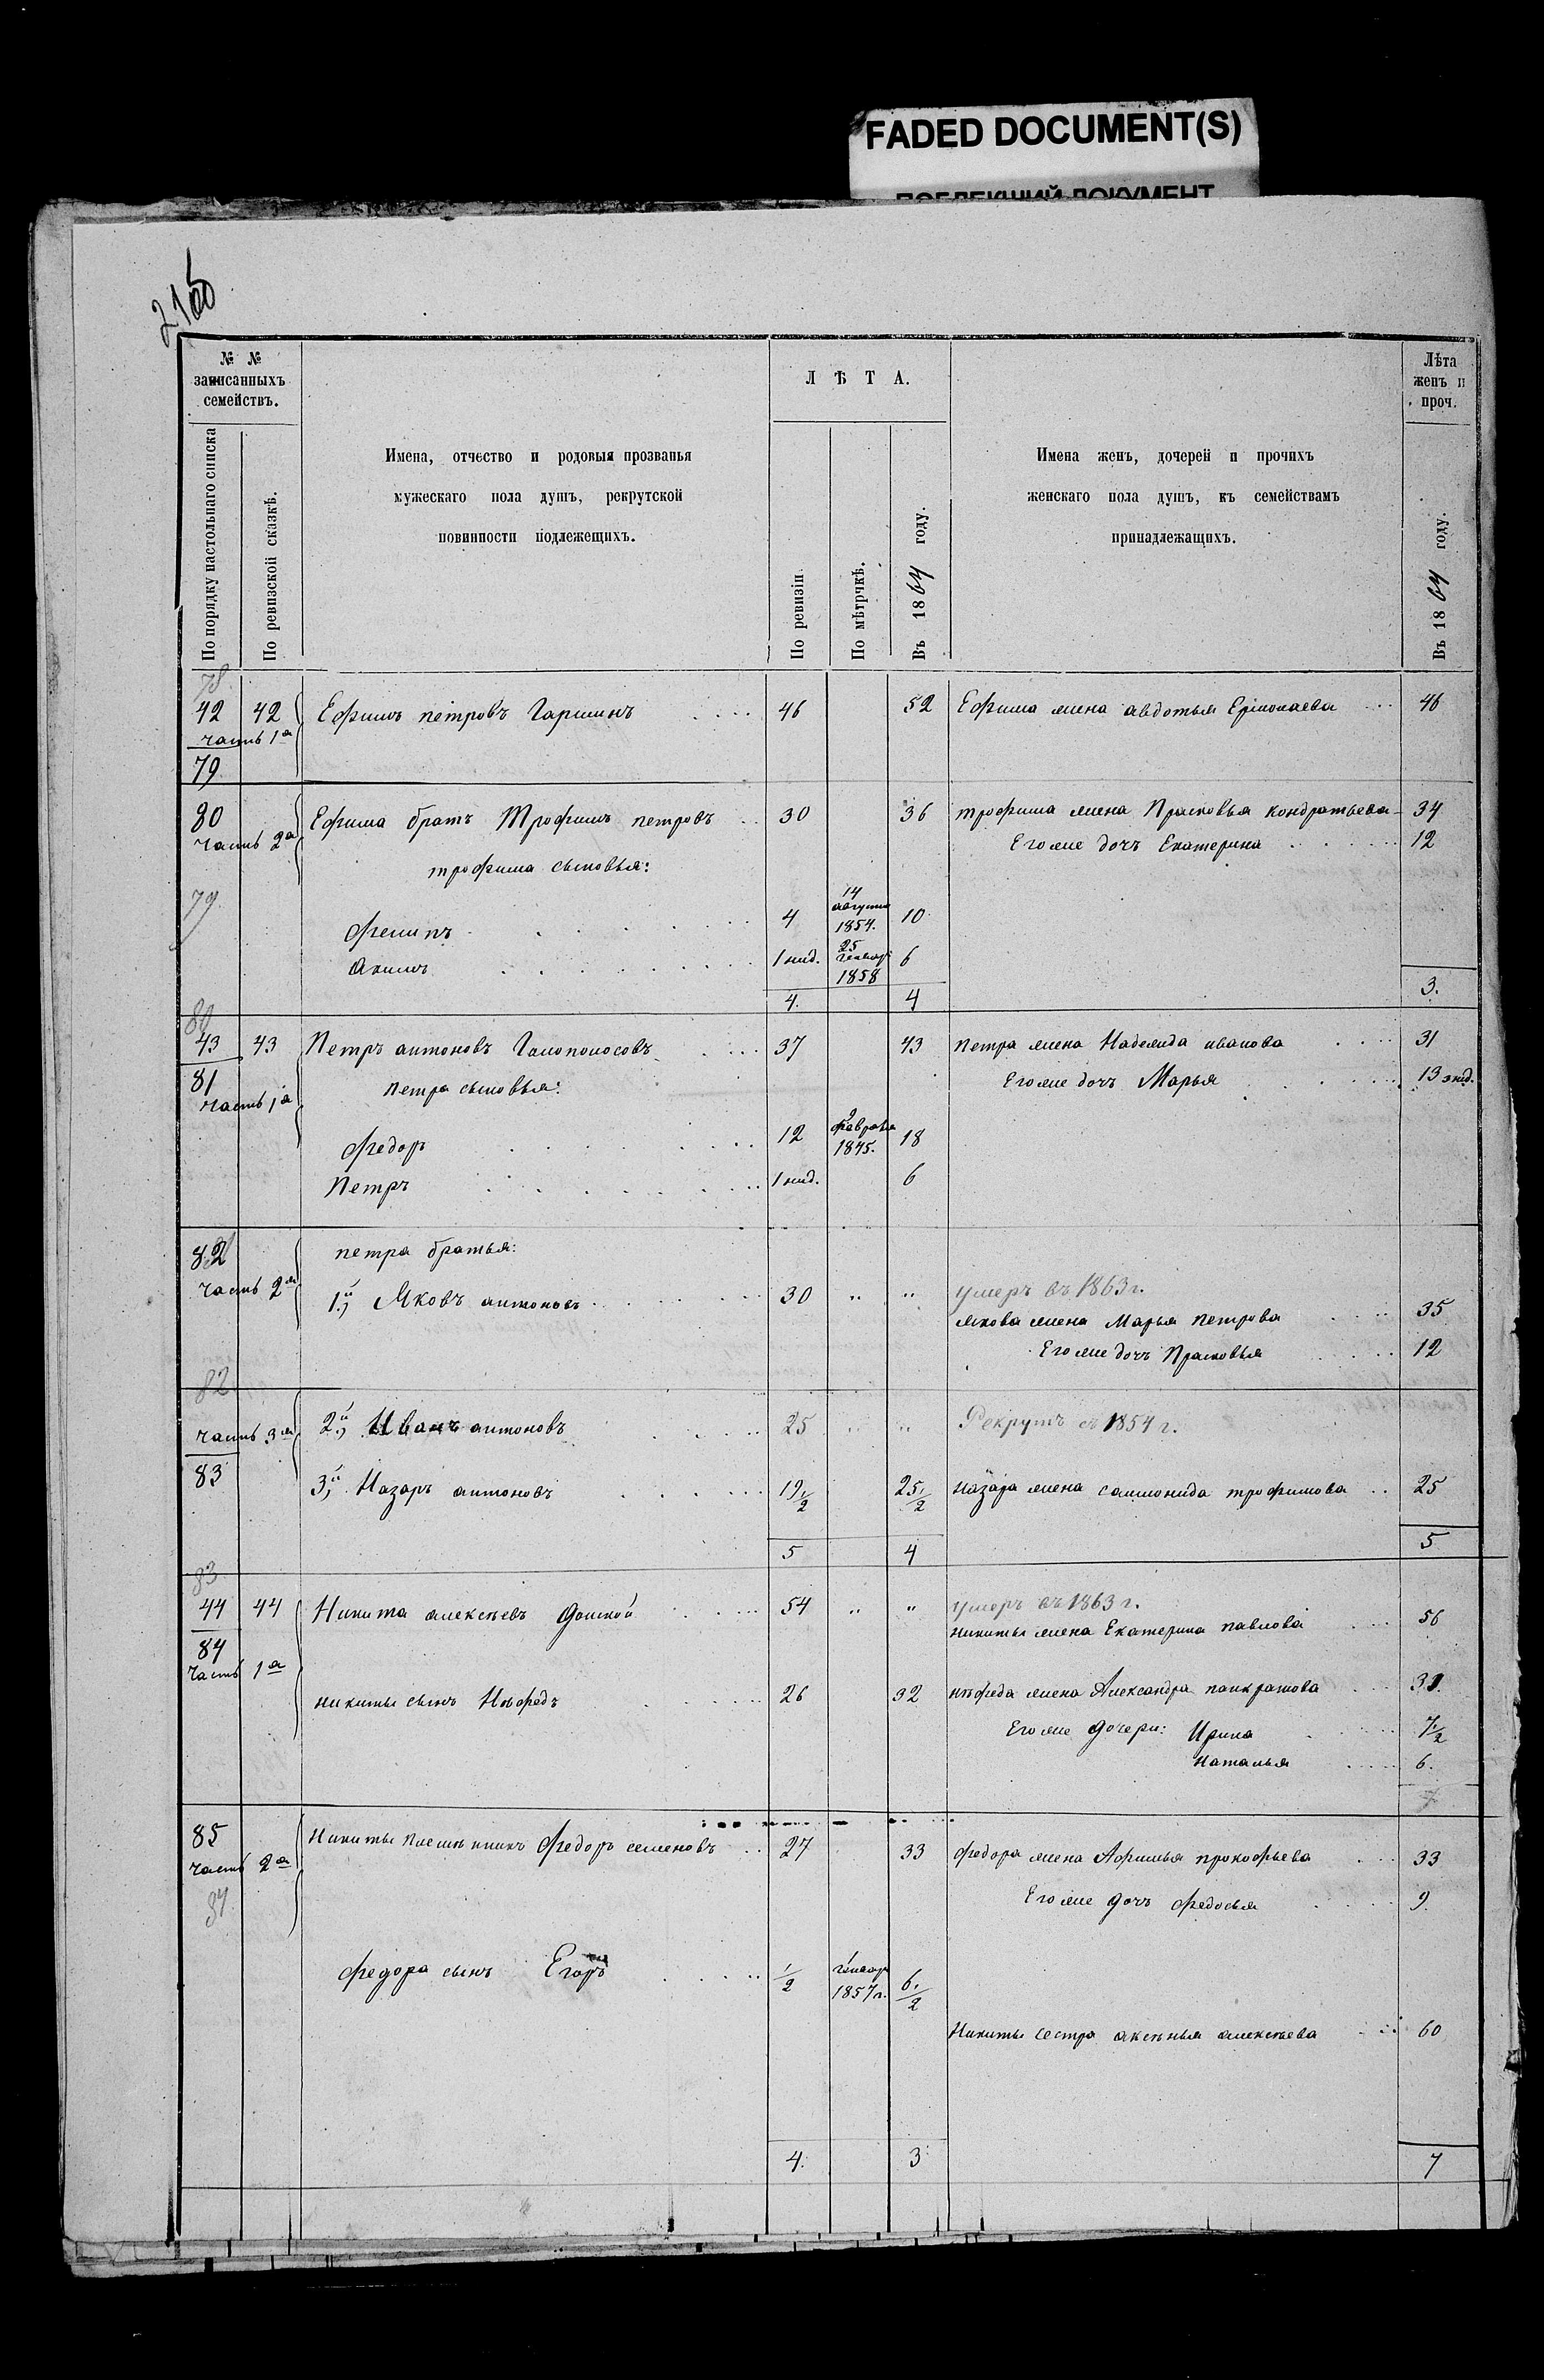 FADED DOCUMENT(S)
ПОБЛЕКШИЙ ДОКУМЕНТ
№ №
записанныхъ
семействъ.
По порядку настольнаго списка
По ревизской сказкѣ.
Имена, отчество и родовыя прозванья
мужескаго пола душъ, рекрутской
повинности подлежещихъ.
ЛѢТА.
По ревизіи
По мѣтрчкѣ.
Въ 1864 году.
Имена женъ, дочерей и прочихъ
женскаго пола душъ, къ семействамъ
принадлежащихъ.
Лѣта
женъ и
проч.
Въ 1864 году.
78
42 42 Ефимъ петровъ Гаршинъ 46 52 Ефима жена авдотья Ермолаева 46
часть 1я
79
80 Ефима братъ Трофимъ петровъ 30 36 трофима жена Прасковья кондратьева 34
часть 2я Его же дочь Екатерина 12
трофима сыновья:
79
14
августа
1854.
Филипъ 4 10
25
генвар
1858
Акимъ 1 нид. 6
4. 4 3.
80
43 43 Петръ антоновъ Голоносовъ 37 43 петра жена Надежда иванова 31
81 петра сыновья: Его же дочь Марья 13 нид.
часть 1я
2
февраля
1845.
Федоръ 12 18
Петръ 1 нид. 6
82 петра братья:
часть 2я 1й, Яковъ антоновъ 30 " " умеръ въ 1863 г.
якова жена Марья петрова 35
Его же дочь Прасковья 12
82
часть 3я 2й, Иванъ антоновъ 25 " " Рекрутъ съ 1854 г.
83 3й, Назаръ антоновъ 19 1/2 25 1/2 назара жена соломонида трофимова 25
5 4 5
83
44 44 Никита алексѣевъ Донской 54 " " умеръ въ 1863 г.
84 никиты жена Екатерина павлова 56
часть 1я
никиты сынъ Нефедъ 26 32 нефеда жена Александра панкратова 31
Его же дочери: Ирина 7 1/2
Наталья 6.
85 Никиты племянникъ Федоръ семеновъ 27 33 федора жена Афимья прокофьева 33
часть 2я Его же дочь федосья 9.
84
федора сынъ Егоръ 1/2 1 генвар 1857 г. 6 1/2
Никиты сестра аксѣнья алексѣева 60
4. 3 7